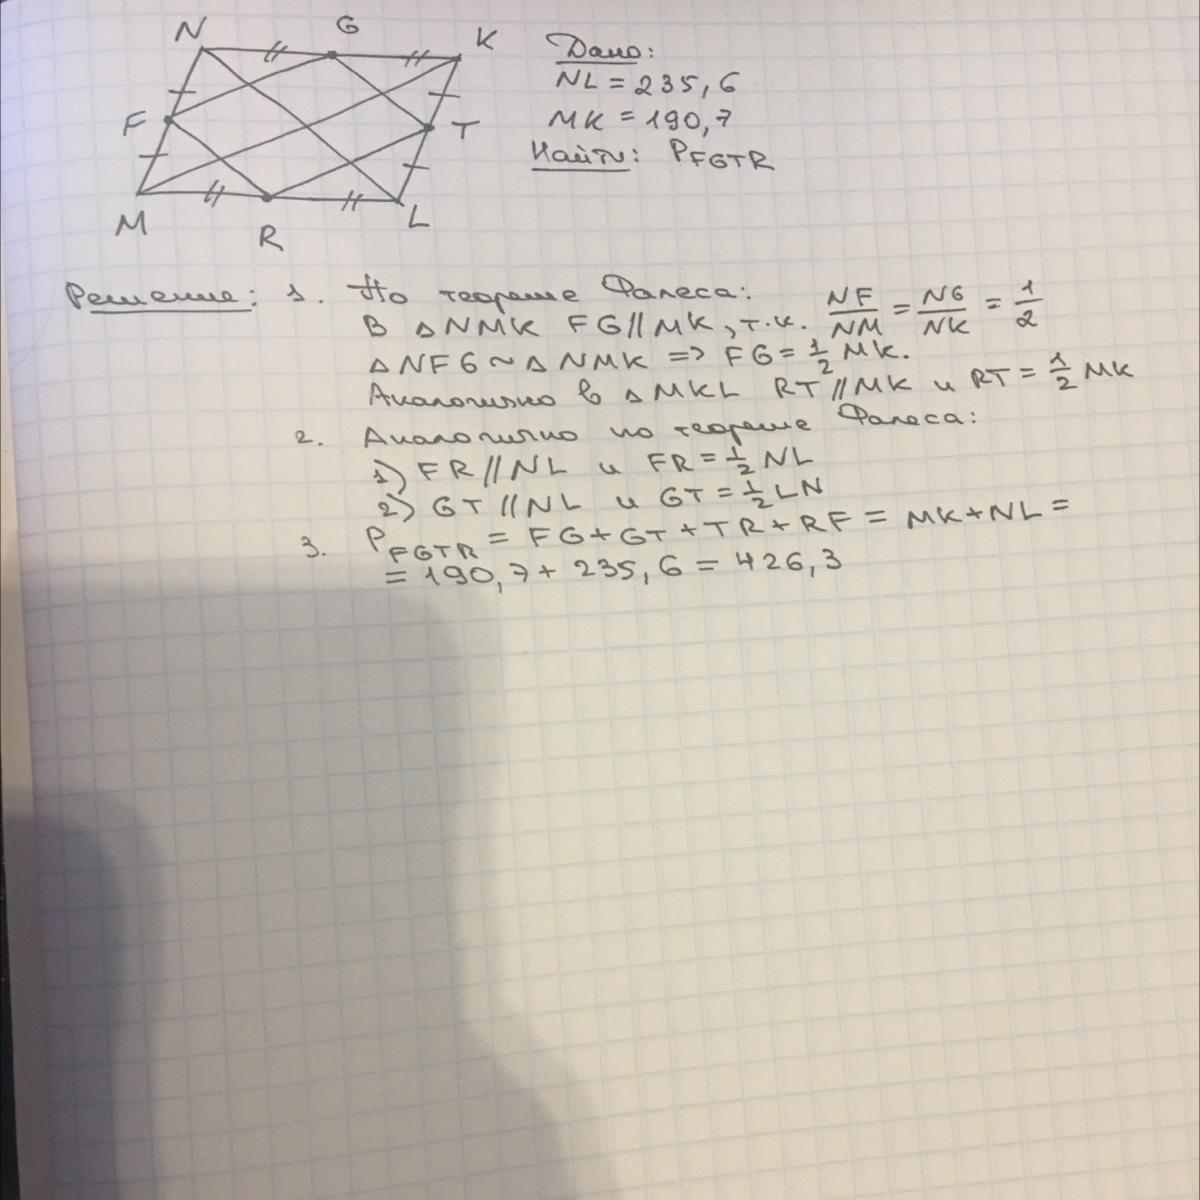 N G K
F T
M R L
Дано:
NL = 235,6
MK = 190,7
Найти: P_FGTR
Решение: 1. По теореме Фалеса:
В △NMK FG // MK, т.к. NF/NM = NG/NK = 1/2
△NFG ~ △NMK => FG = 1/2 MK.
Аналогично в △MKL RT // MK и RT = 1/2 MK
2. Аналогично по теореме Фалеса:
1) FR // NL и FR = 1/2 NL
2) GT // NL и GT = 1/2 LN
3. P_FGTR = FG + GT + TR + RF = MK + NL =
= 190,7 + 235,6 = 426,3